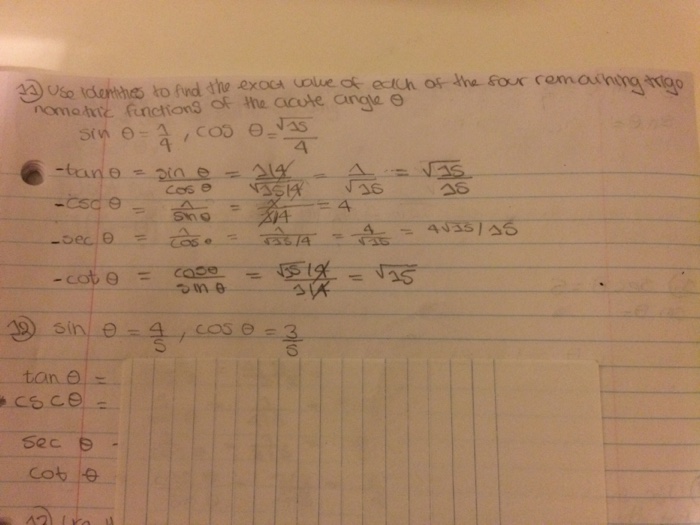 11) Use identities to find the exact value of each of the four remaining trigo
nometric functions of the acute angle θ
sin θ = 1/4 , cos θ = √15/4
-tan θ = sin θ/cos θ = 1/4/√15/4 = 1/√15 = √15/15
-csc θ = 1/sin θ = 1/1/4 = 4
-sec θ = 1/cos θ = 1/√15/4 = 4/√15 = 4√15/15
-cot θ = cos θ/sin θ = √15/4/1/4 = √15
12) sin θ = 4/5 , cos θ = 3/5
tan θ =
csc θ =
sec θ -
cot θ